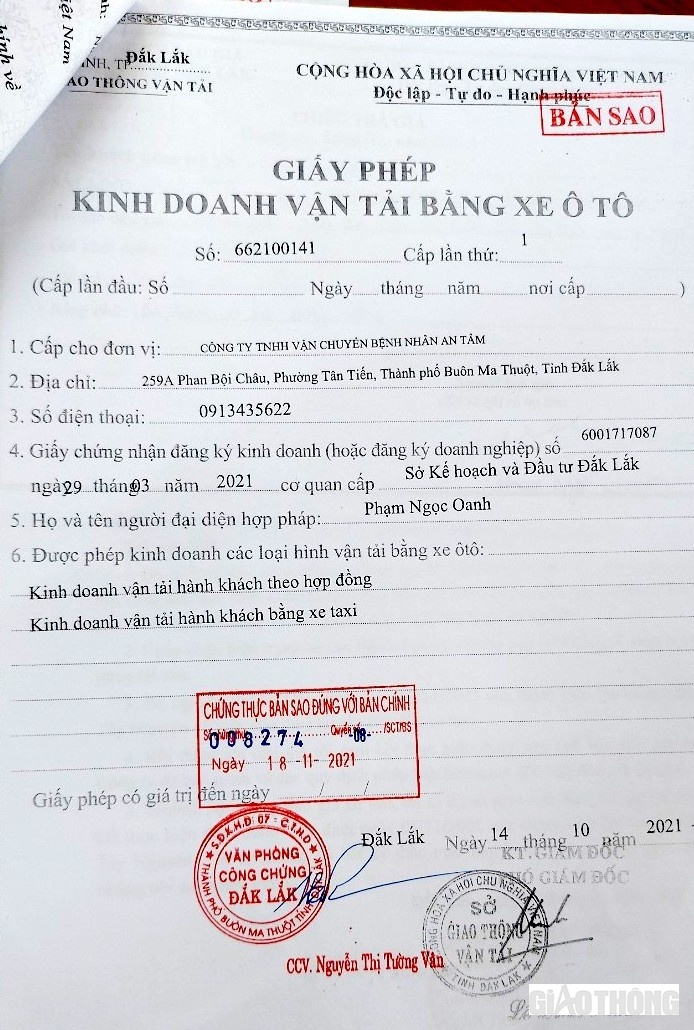 ỈNH, TP Đắk Lắk
AO THÔNG VẬN TẢI
iệt Nam
CỘNG HÒA XÃ HỘI CHỦ NGHĨA VIỆT NAM
Độc lập - Tự do - Hạnh phúc
BẢN SAO
GIẤY PHÉP
KINH DOANH VẬN TẢI BẰNG XE Ô TÔ
Số: 662100141 Cấp lần thứ: 1
(Cấp lần đầu: Số Ngày tháng năm nơi cấp )
1. Cấp cho đơn vị: CÔNG TY TNHH VẬN CHUYỂN BỆNH NHÂN AN TÂM
2. Địa chỉ: 259A Phan Bội Châu, Phường Tân Tiến, Thành phố Buôn Ma Thuột, Tỉnh Đắk Lắk
3. Số điện thoại: 0913435622
4. Giấy chứng nhận đăng ký kinh doanh (hoặc đăng ký doanh nghiệp) số 6001717087
ngày 29 tháng 03 năm 2021 cơ quan cấp Sở Kế hoạch và Đầu tư Đắk Lắk
5. Họ và tên người đại diện hợp pháp: Phạm Ngọc Oanh
6. Được phép kinh doanh các loại hình vận tải bằng xe ôtô:
Kinh doanh vận tải hành khách theo hợp đồng
Kinh doanh vận tải hành khách bằng xe taxi
CHỨNG THỰC BẢN SAO ĐÚNG VỚI BẢN CHÍNH
008274 Quyển số -08- /SCT/BS
Ngày 18-11-2021
Giấy phép có giá trị đến ngày / /
Đắk Lắk Ngày 14 tháng 10 năm 2021
KT. GIÁM ĐỐC
PHÓ GIÁM ĐỐC
S.Đ.K.H.Đ: 07 - C.T.H.D
VĂN PHÒNG
CÔNG CHỨNG
ĐẮK LẮK
THÀNH PHỐ BUÔN MA THUỘT TỈNH ĐẮK LẮK
CỘNG HÒA XÃ HỘI CHỦ NGHĨA VIỆT NAM
SỞ
GIAO THÔNG
VẬN TẢI
TỈNH ĐẮK LẮK
CCV. Nguyễn Thị Tường Vân
GIAOTHÔNG